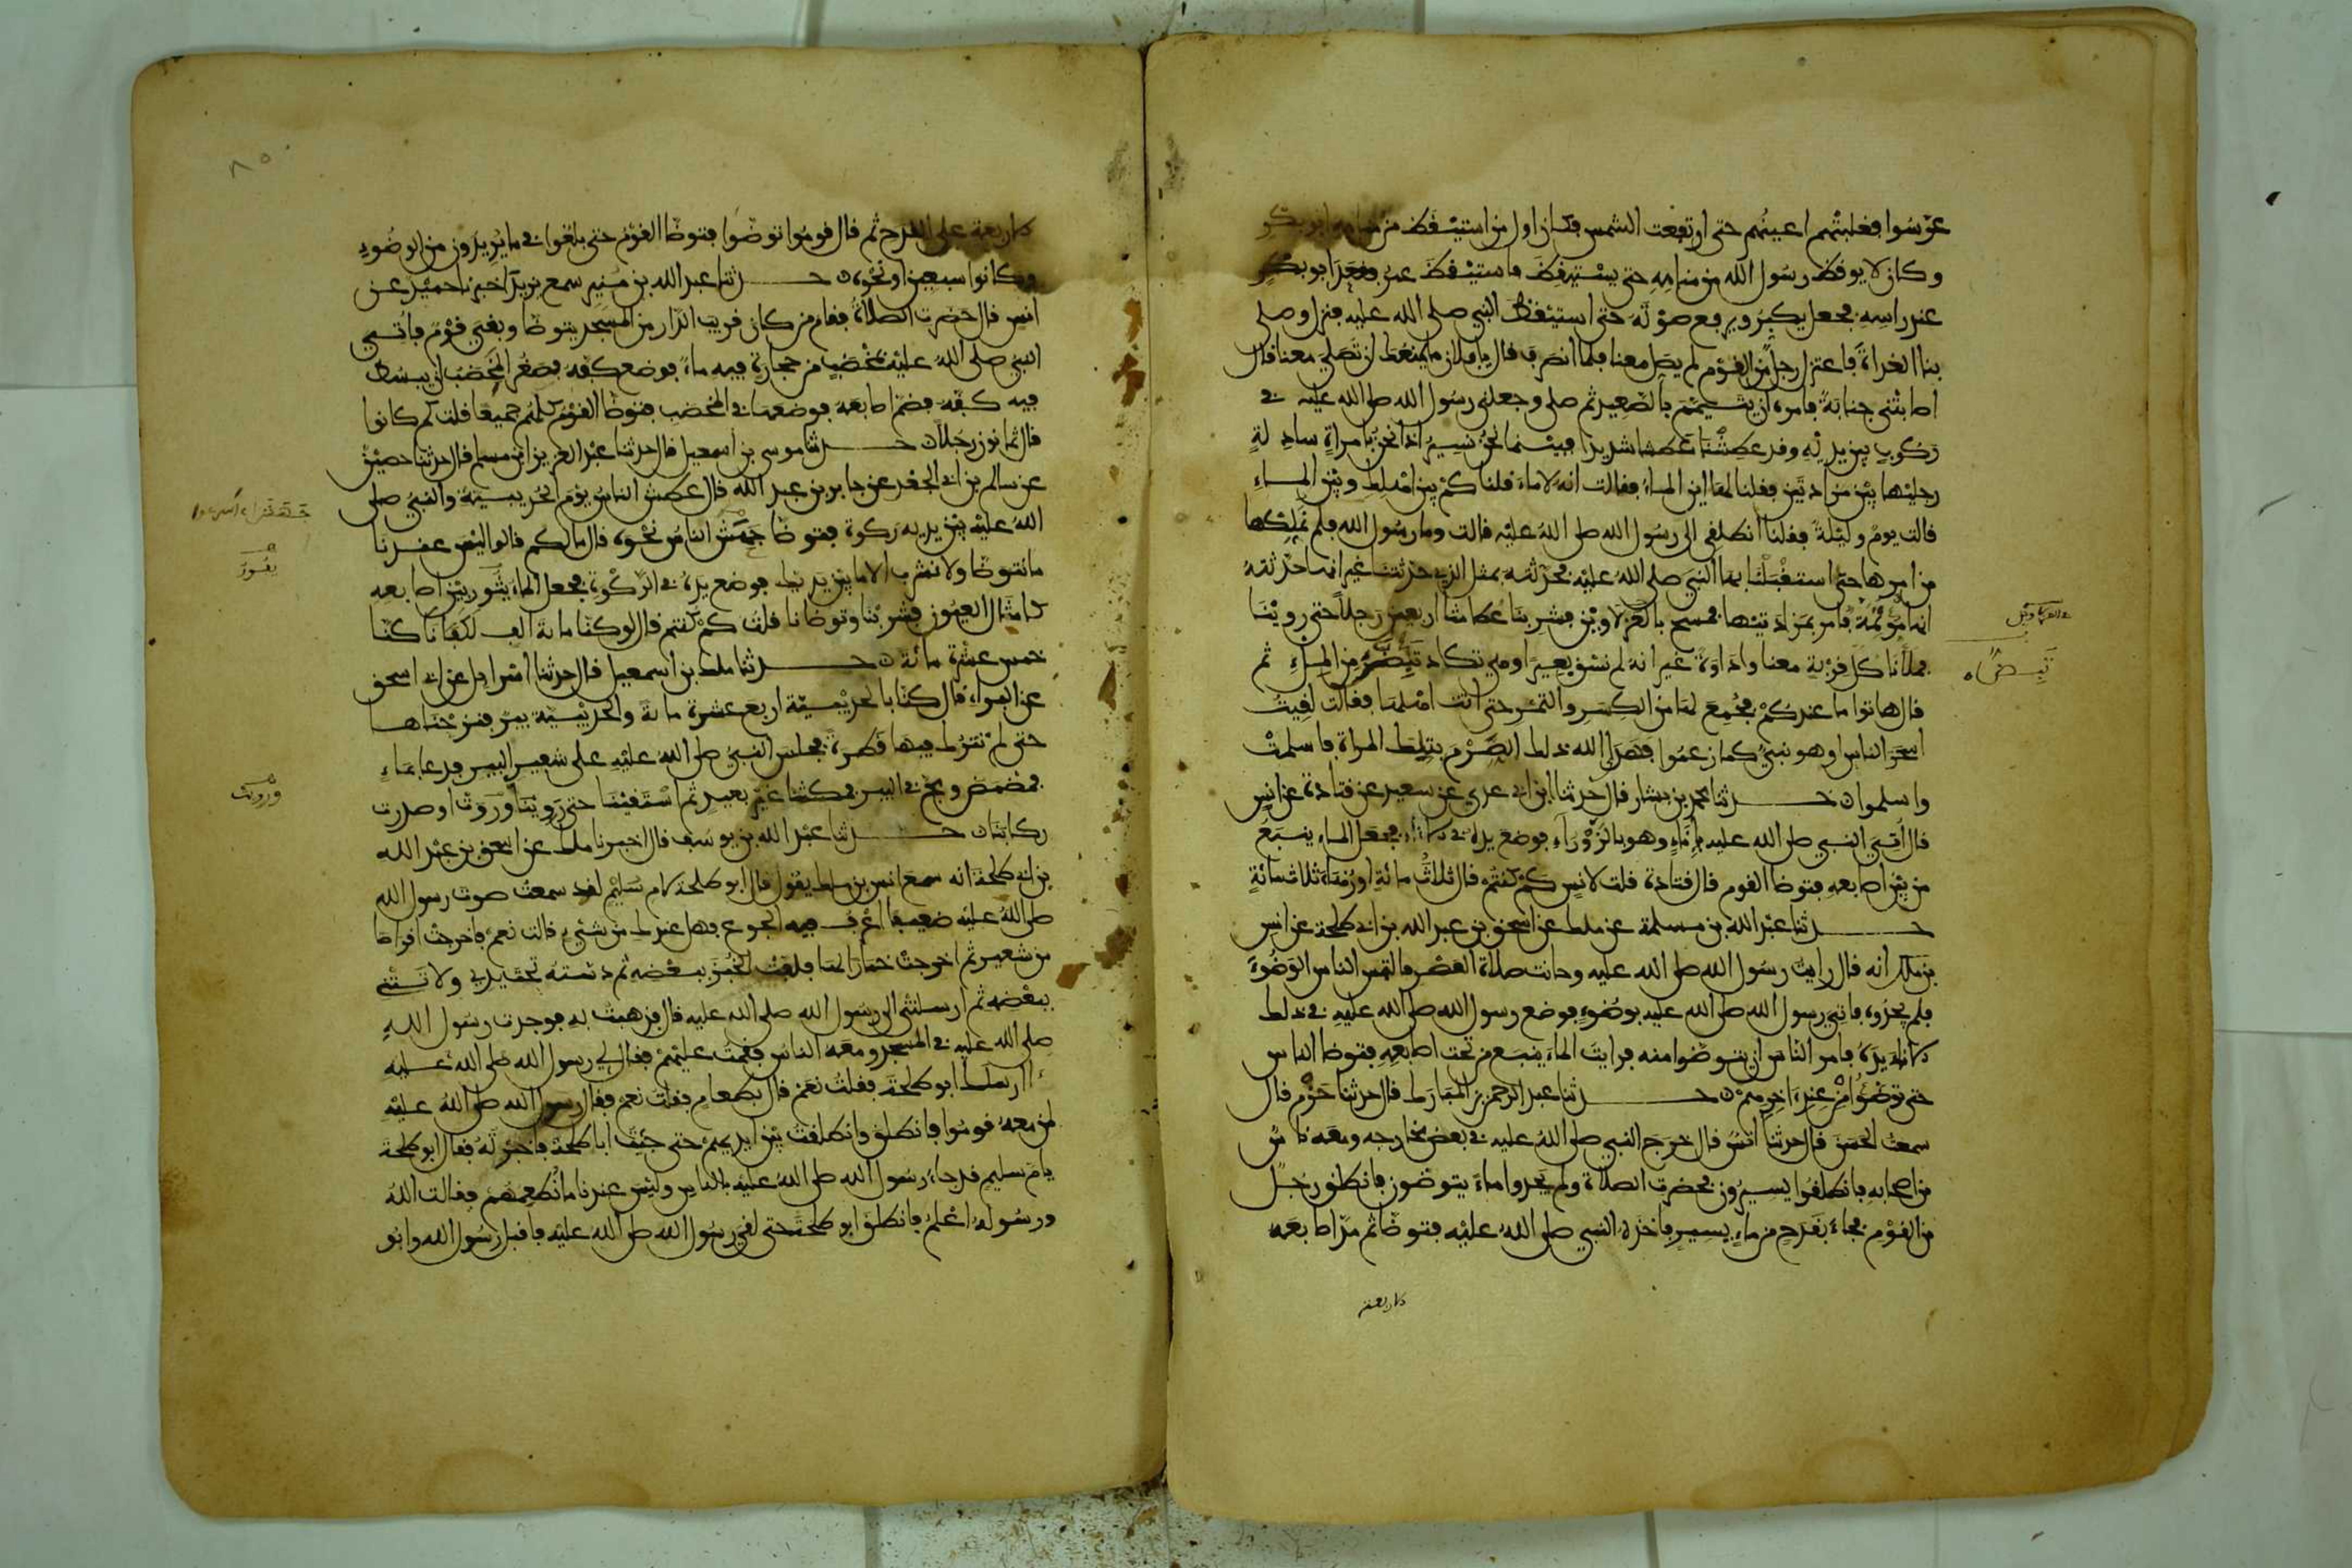 عرّسوا فغلبتهم اعينهم حتى ارتفعت الشمس فكان اول من استيقظ من منامه ابو بكر
وكان لا يوقظ رسول الله من منامه حتى يستيقظ فاستيقظ عمر فقعد ابو بكر
عند راسه فجعل يكبر ويرفع صوته حتى استيقظ النبي صلى الله عليه فنزل وصلى
بنا الغداة فاعتزل رجل من القوم لم يصل معنا فلما انصرف قال يا فلان ما يمنعك ان تصلي معنا قال
اصابتني جنابة فامره ان يتيمم بالصعيد ثم صلى وجعلني رسول الله صلى الله عليه في
ركوب بين يديه وقد عطشنا عطشا شديدا فبينما نحن نسير اذا نحن بامراة سادلة
رجليها بين مزادتين فقلنا لها اين الماء فقالت انه لا ماء قلنا كم بين اهلك وبين الماء
قالت يوم وليلة فقلنا انطلقي الى رسول الله صلى الله عليه قالت وما رسول الله فلم نملكها
من امرها حتى استقبلنا بها النبي صلى الله عليه فحدثته بمثل الذي حدثتنا غير انها حدثته
انها موتمة فامر بمزادتيها فمسح بالعزلاوين فشربنا عطاشا اربعين رجلا حتى روينا
فملأنا كل قربة معنا واداوة غير انه لم نسق بعيرا وهي تكاد من الملء ثم
قال هاتوا ما عندكم فجمع لها من الكسر والتمر حتى اتت اهلها فقالت لقيت
اسحر الناس او هو نبي كما زعموا فهدى الله ذلك الصرم بتلك المراة فاسلمت
واسلموا ن حدثنا محمد بن بشار قال حدثنا ابن ابي عدي عن سعيد عن قتادة عن انس
قال اتي النبي صلى الله عليه باناء وهو بالزوراء فوضع يده في الاناء فجعل الماء ينبع
من بين اصابعه فتوضا القوم قال قتادة قلت لانس كم كنتم قال ثلاث مائة او زهاء ثلاث مائة
حدثنا عبد الله بن مسلمة عن ملك عن اسحق بن عبد الله بن ابي طلحة عن انس
بن ملك انه قال رايت رسول الله صلى الله عليه وحانت صلاة العصر فالتمس الناس الوضوء
فلم يجدوه فاتي رسول الله صلى الله عليه بوضوء فوضع رسول الله صلى الله عليه في ذلك
الاناء يده فامر الناس ان يتوضوا منه فرايت الماء ينبع من تحت اصابعه فتوضا الناس
حتى توضوا من عند اخرهم ن حدثنا عبد الرحمن بن المبارك قال حدثنا حزم قال
سمعت الحسن قال حدثنا انس قال خرج النبي صلى الله عليه في بعض مخارجه ومعه ناس
من اصحابه فانطلقوا يسيرون فحضرت الصلاة ولم يجدوا ماء يتوضون فانطلق رجل
من القوم فجاء بقدح من ماء يسير فاخذه النبي صلى الله عليه فتوضا ثم مد اصابعه
الاربعة
الاربعة على القدح ثم قال قوموا توضوا فتوضا القوم حتى بلغوا في ما يريدون من الوضوء
وكانوا سبعين او نحوه ن حدثنا عبد الله بن منير سمع يزيد اخبرنا حميد عن
انس قال حضرت الصلاة فقام من كان قريب الدار من المسجد يتوضا وبقي قوم فاتي
النبي صلى الله عليه بمخضب من حجارة فيه ماء فوضع كفه فصغر المخضب ان يبسط
فيه كفه فضم اصابعه فوضعها في المخضب فتوضا القوم كلهم جميعا قلت كم كانوا
قال ثمانون رجلا ن حدثنا موسى بن اسمعيل قال حدثنا عبد العزيز ابن مسلم قال حدثنا حصين
عن سالم بن ابي الجعد عن جابر بن عبد الله قال عطش الناس يوم الحديبية والنبي صلى
الله عليه بين يديه ركوة فتوضا جهش الناس نحوه قال ما لكم قالوا ليس عندنا
ما نتوضا ولا نشرب الا ما بين يديك فوضع يده في الركوة فجعل الماء يثور بين اصابعه
كامثال العيون فشربنا وتوضانا قلت كم كنتم قال لو كنا ماية الف لكفانا كنا
خمس عشرة مائة ن حدثنا ملك بن اسمعيل قال حدثنا اسرائل عن ابي اسحق
عن البراء قال كنا بالحديبية اربع عشرة ماية والحديبية بير فنزحناها
حتى لم نترك فيها قطرة فجلس النبي صلى الله عليه على شفير البير فدعا بماء
فمضمض ومج في البير فمكثنا غير بعيد ثم استقينا حتى روينا وروت او صدرت
ركابنا ن حدثنا عبد الله بن يوسف قال اخبرنا ملك عن اسحق بن عبد الله
بن ابي طلحة انه سمع انس بن ملك يقول قال ابو طلحة لام سليم لقد سمعت صوت رسول الله
صلى الله عليه ضعيفا اعرف فيه الجوع فهل عندك من شئي قالت نعم فاخرجت اقراصا
من شعير ثم اخرجت خمارا لها فلفت الخبز ببعضه ثم دسته تحت يدي ولاثتني
ببعضه ثم ارسلتني الى رسول الله صلى الله عليه قال فذهبت به فوجدت رسول الله
صلى الله عليه في المسجد ومعه الناس فقمت عليهم فقال لي رسول الله صلى الله عليه
ءارسلك ابو طلحة فقلت نعم قال بطعام فقلت نعم فقال رسول الله صلى الله عليه
لمن معه قوموا فانطلق وانطلقت بين ايديهم حتى جئت ابا طلحة فاخبرته فقال ابو طلحة
يام سليم قد جاء رسول الله صلى الله عليه بالناس وليس عندنا ما نطعمهم فقالت الله
ورسوله اعلم فانطلق ابو طلحة حتى لقي رسول الله صلى الله عليه فاقبل رسول الله وابو
يفور
ورويت